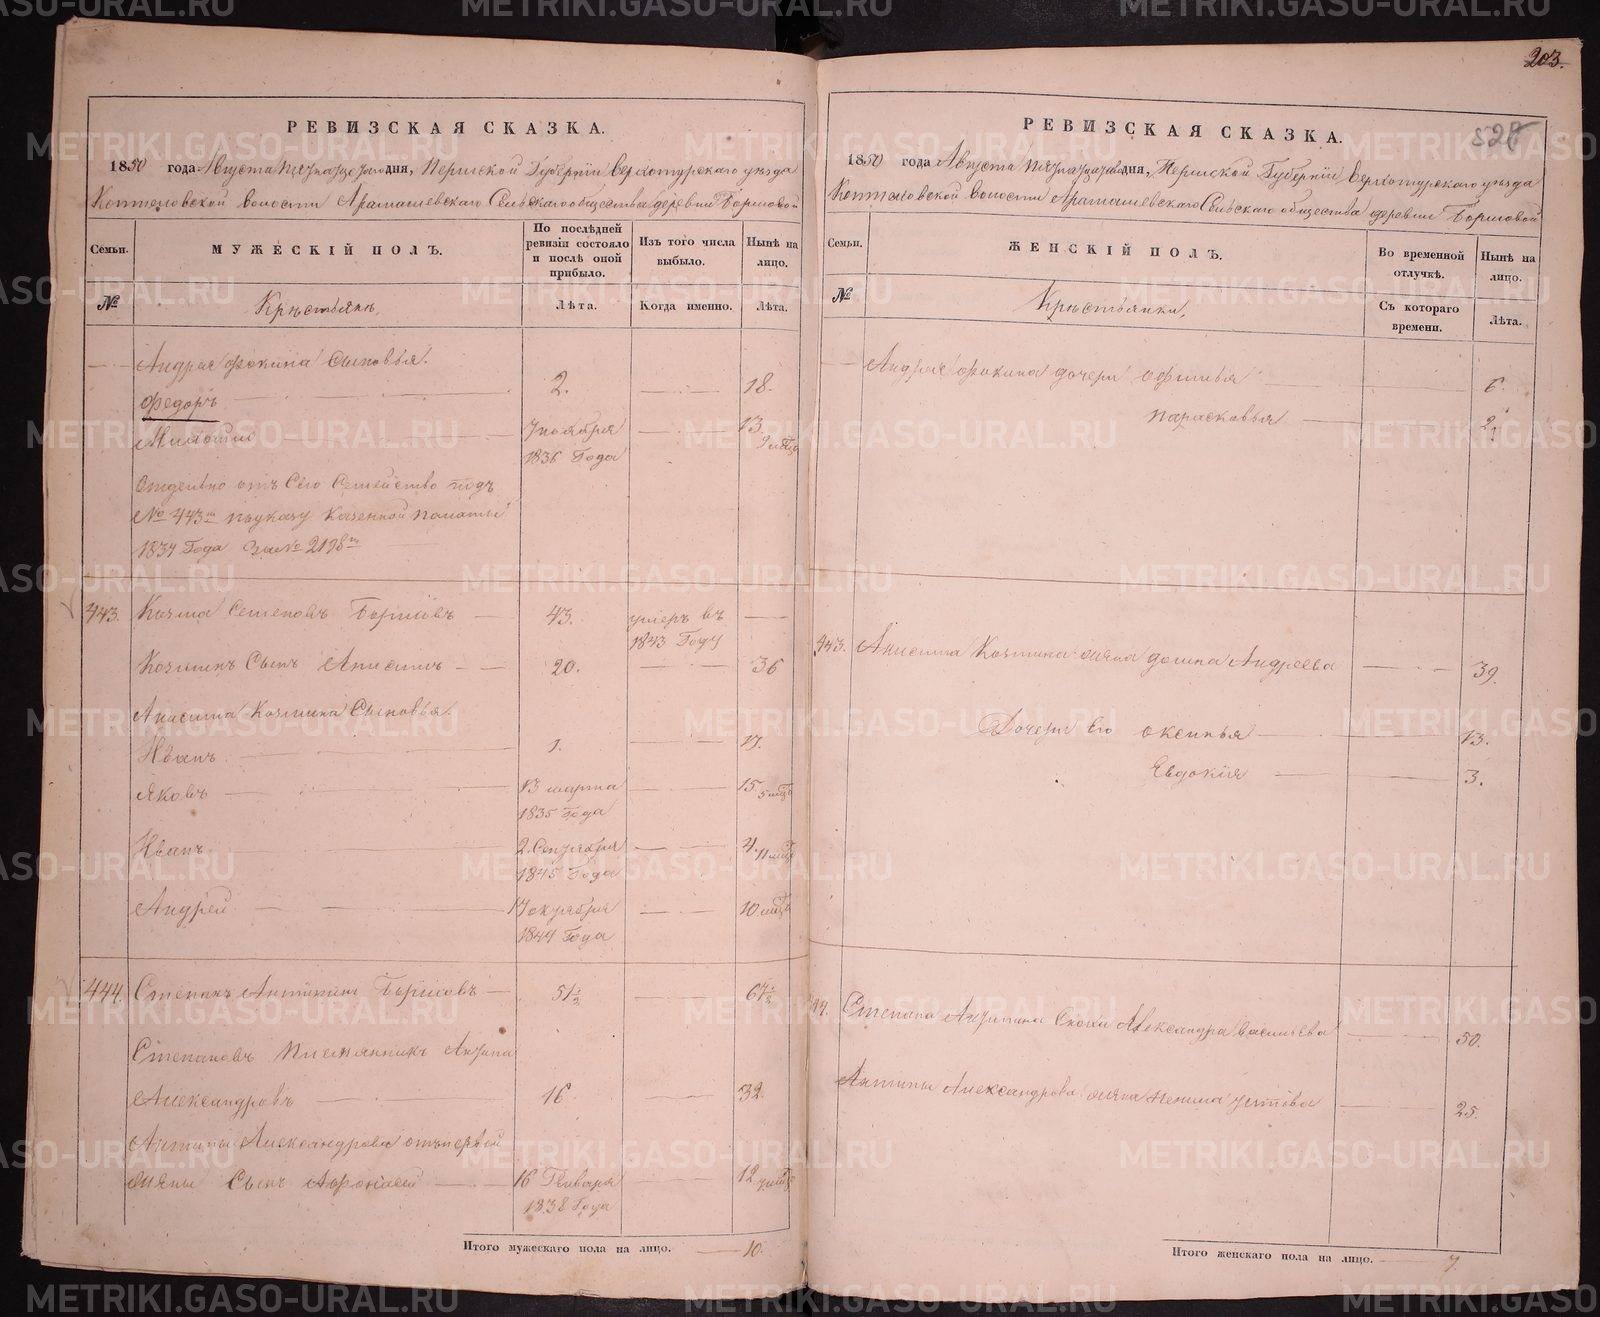 203.
528
РЕВИЗСКАЯ СКАЗКА.
1850 года Августа Пятнадцатого дня, Пермской Губернии Верхотурскаго уезда
Коптеловской волости Арамашевскаго Сельскаго общества деревни Боршовой
Семьи.
МУЖЕСКІЙ ПОЛЪ.
По послѣдней ревизіи состояло и послѣ оной прибыло.
Изъ того числа выбыло.
Нынѣ на лицо.
№
Крестьяне,
Лѣта.
Когда именно.
Лѣта.
Андрея Фокина Сыновья.
Федоръ 2. 18.
7 ноября 13 9 мцъ
1836 Года
Отдельно отъ Сего Семейство подъ
№ 443м по указу Казенной Палаты
1837 Года За № 2198м
443. Козма Семеновъ Боршовъ 43. умеръ въ
1843 Году
Козминъ Сынъ Анисимъ 20. 36
Анисима Козмина Сыновья.
Иванъ 1. 17.
Яковъ 13 марта 15 5 мцъ
1835 Года
Иванъ 2 Сентября 4 11 мцъ
1845 Года
Андрей 17 октября 10 мцъ
1849 Года
444. Степанъ Антипинъ Боршовъ 51½ 67½
Степановъ Племянникъ Антипа
Александровъ 16 32
Антипы Александрова отъ первой
жены Сынъ Афонасей 16 Генваря 12 7 мцъ
1838 Года
Итого мужескаго пола на лицо. 10.
РЕВИЗСКАЯ СКАЗКА.
1850 года Августа Пятнадцатого дня, Пермской Губернии Верхотурскаго уезда
Коптеловской волости Арамашевскаго Сельскаго общества деревни Боршовой
Семьи.
ЖЕНСКІЙ ПОЛЪ.
Во временной отлучкѣ.
Нынѣ на лицо.
№
Крестьянки,
Съ котораго времени.
Лѣта.
Андрея Фокина дочери Офимья 6.
Парасковья 2½
443. Анисима Козмина жена Домна Андреева 39.
Дочери его Оксинья 13.
Евдокия 3.
44. Степана Антипина Сноха Александра Васильева 50.
Антипы Александрова жена 25.
Итого женскаго пола на лицо. 7